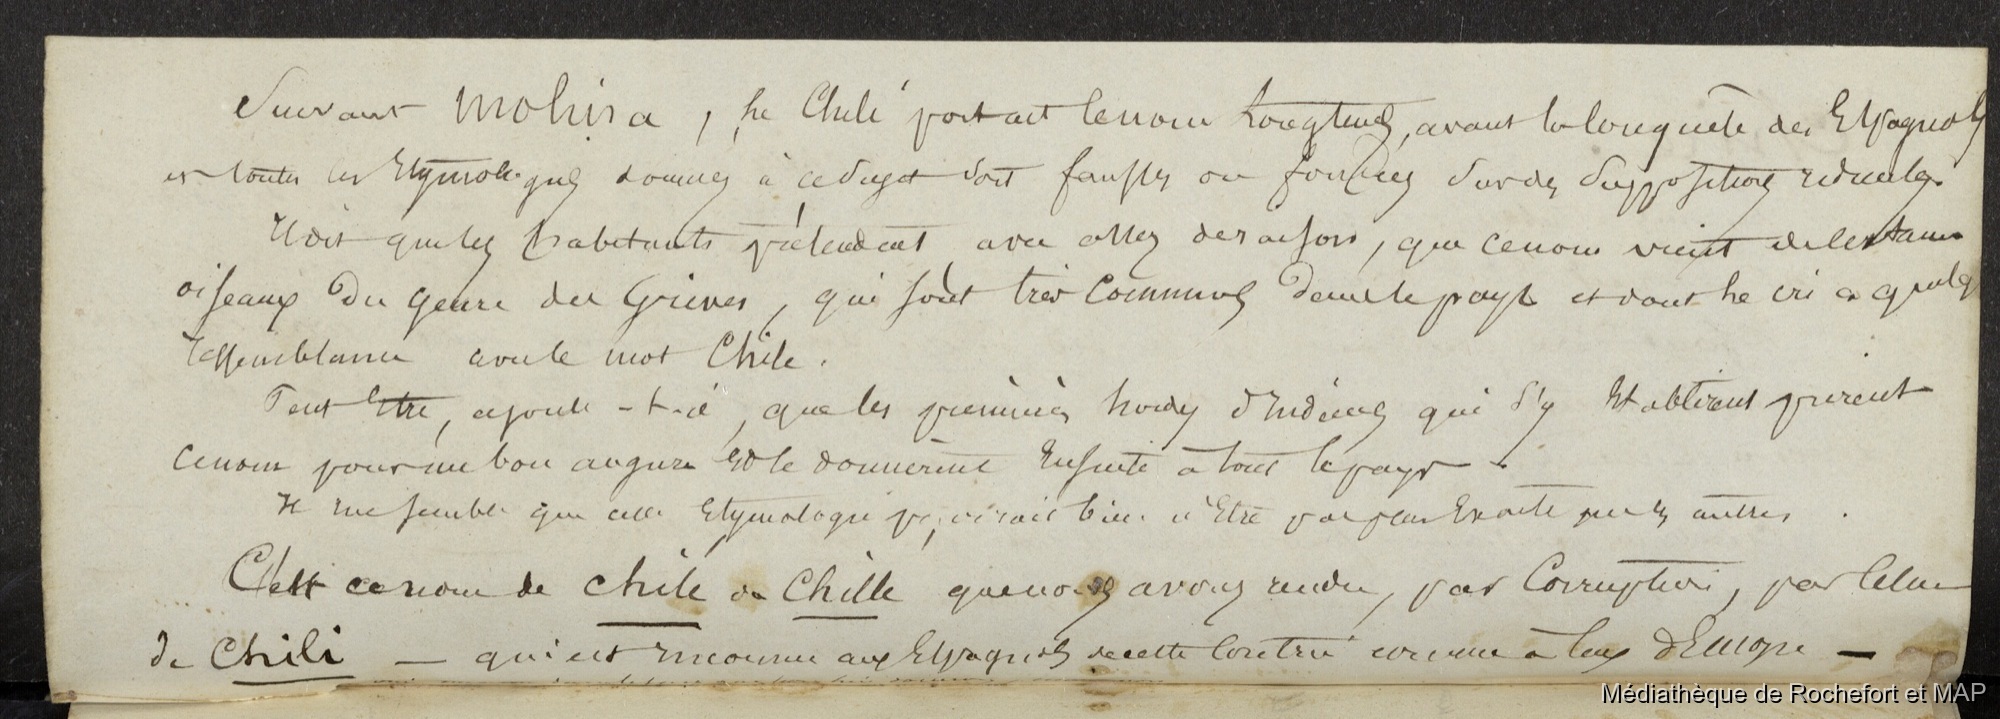 Suivant Molina, le Chili portait le nom longtems, avant la Conquête des Espagnols
et toutes les Etymologies données à ce sujet sont fausses ou fondées sur des suppositions ridicules.
Il dit que les habitants prétendent avec assez de raison, que ce nom vient de certains
oiseaux du genre des Grives, qui sont très communs dans le pays et dont le cri a quelq
ressemblance avec le mot Chile.
Peut Etre, ajoute-t-il, que les premières hordes d'Indiens qui s'y Etablirent prirent
ce nom pour un bon augure et le donnèrent Ensuite à tout le pays.
Il me semble que cette Etymologie pourrait bien n'Etre pas plus Exacte que les autres.
C'est ce nom de Chile ou Chille que nous avons rendu, par Corruption, par Celui
de Chili — qui est inconnu aux Espagnols de cette Contrée comme à ceux d'Europe —
Médiathèque de Rochefort et MAP